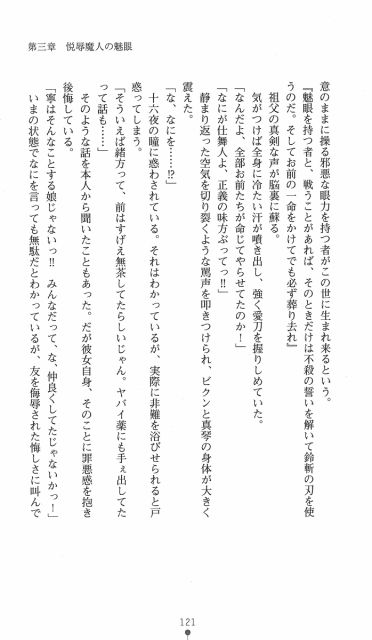 第三章　悦辱魔人の魅眼
意のままに操る邪悪な眼力を持つ者がこの世に生まれ来るという。
『魅眼を持つ者と、戦うことがあれば、そのときだけは不殺の誓いを解いて鈴斬の刃を使
うのだ。そしてお前の一命をかけてでも必ず葬り去れ』
祖父の真剣な声が脳裏に蘇る。
気がつけば全身に冷たい汗が噴き出し、強く愛刀を握りしめていた。
「なんだよ、全部お前たちが命じてやらせてたのか！」
「なにが仕舞人よ、正義の味方ぶってっ‼」
静まり返った空気を切り裂くような罵声を叩きつけられ、ビクンと真琴の身体が大きく
震えた。
「な、なにを……⁉」
十六夜の瞳に惑わされている。それはわかっているが、実際に非難を浴びせられると戸
惑ってしまう。
「そういえば緒方って、前はすげえ無茶してたらしいじゃん。ヤバイ薬にも手ぇ出してた
って話も……」
そのような話を本人から聞いたこともあった。だが彼女自身、そのことに罪悪感を抱き
後悔している。
「寧はそんなことする娘じゃないっ‼　みんなだって、な、仲良くしてたじゃないかっ！」
いまの状態でなにを言っても無駄だとわかっているが、友を侮辱された悔しさに叫んで
121